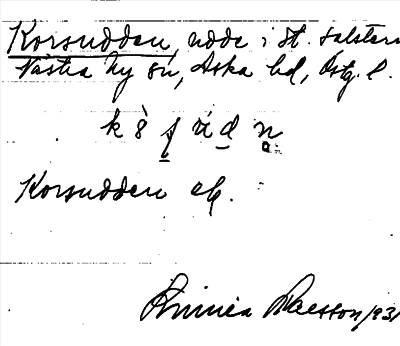 Korsudden, udde i St. Salstern
Västra Ny sn, Aska hd, Östg. l.
Korsudden ek.
Linnéa Klasson 1931